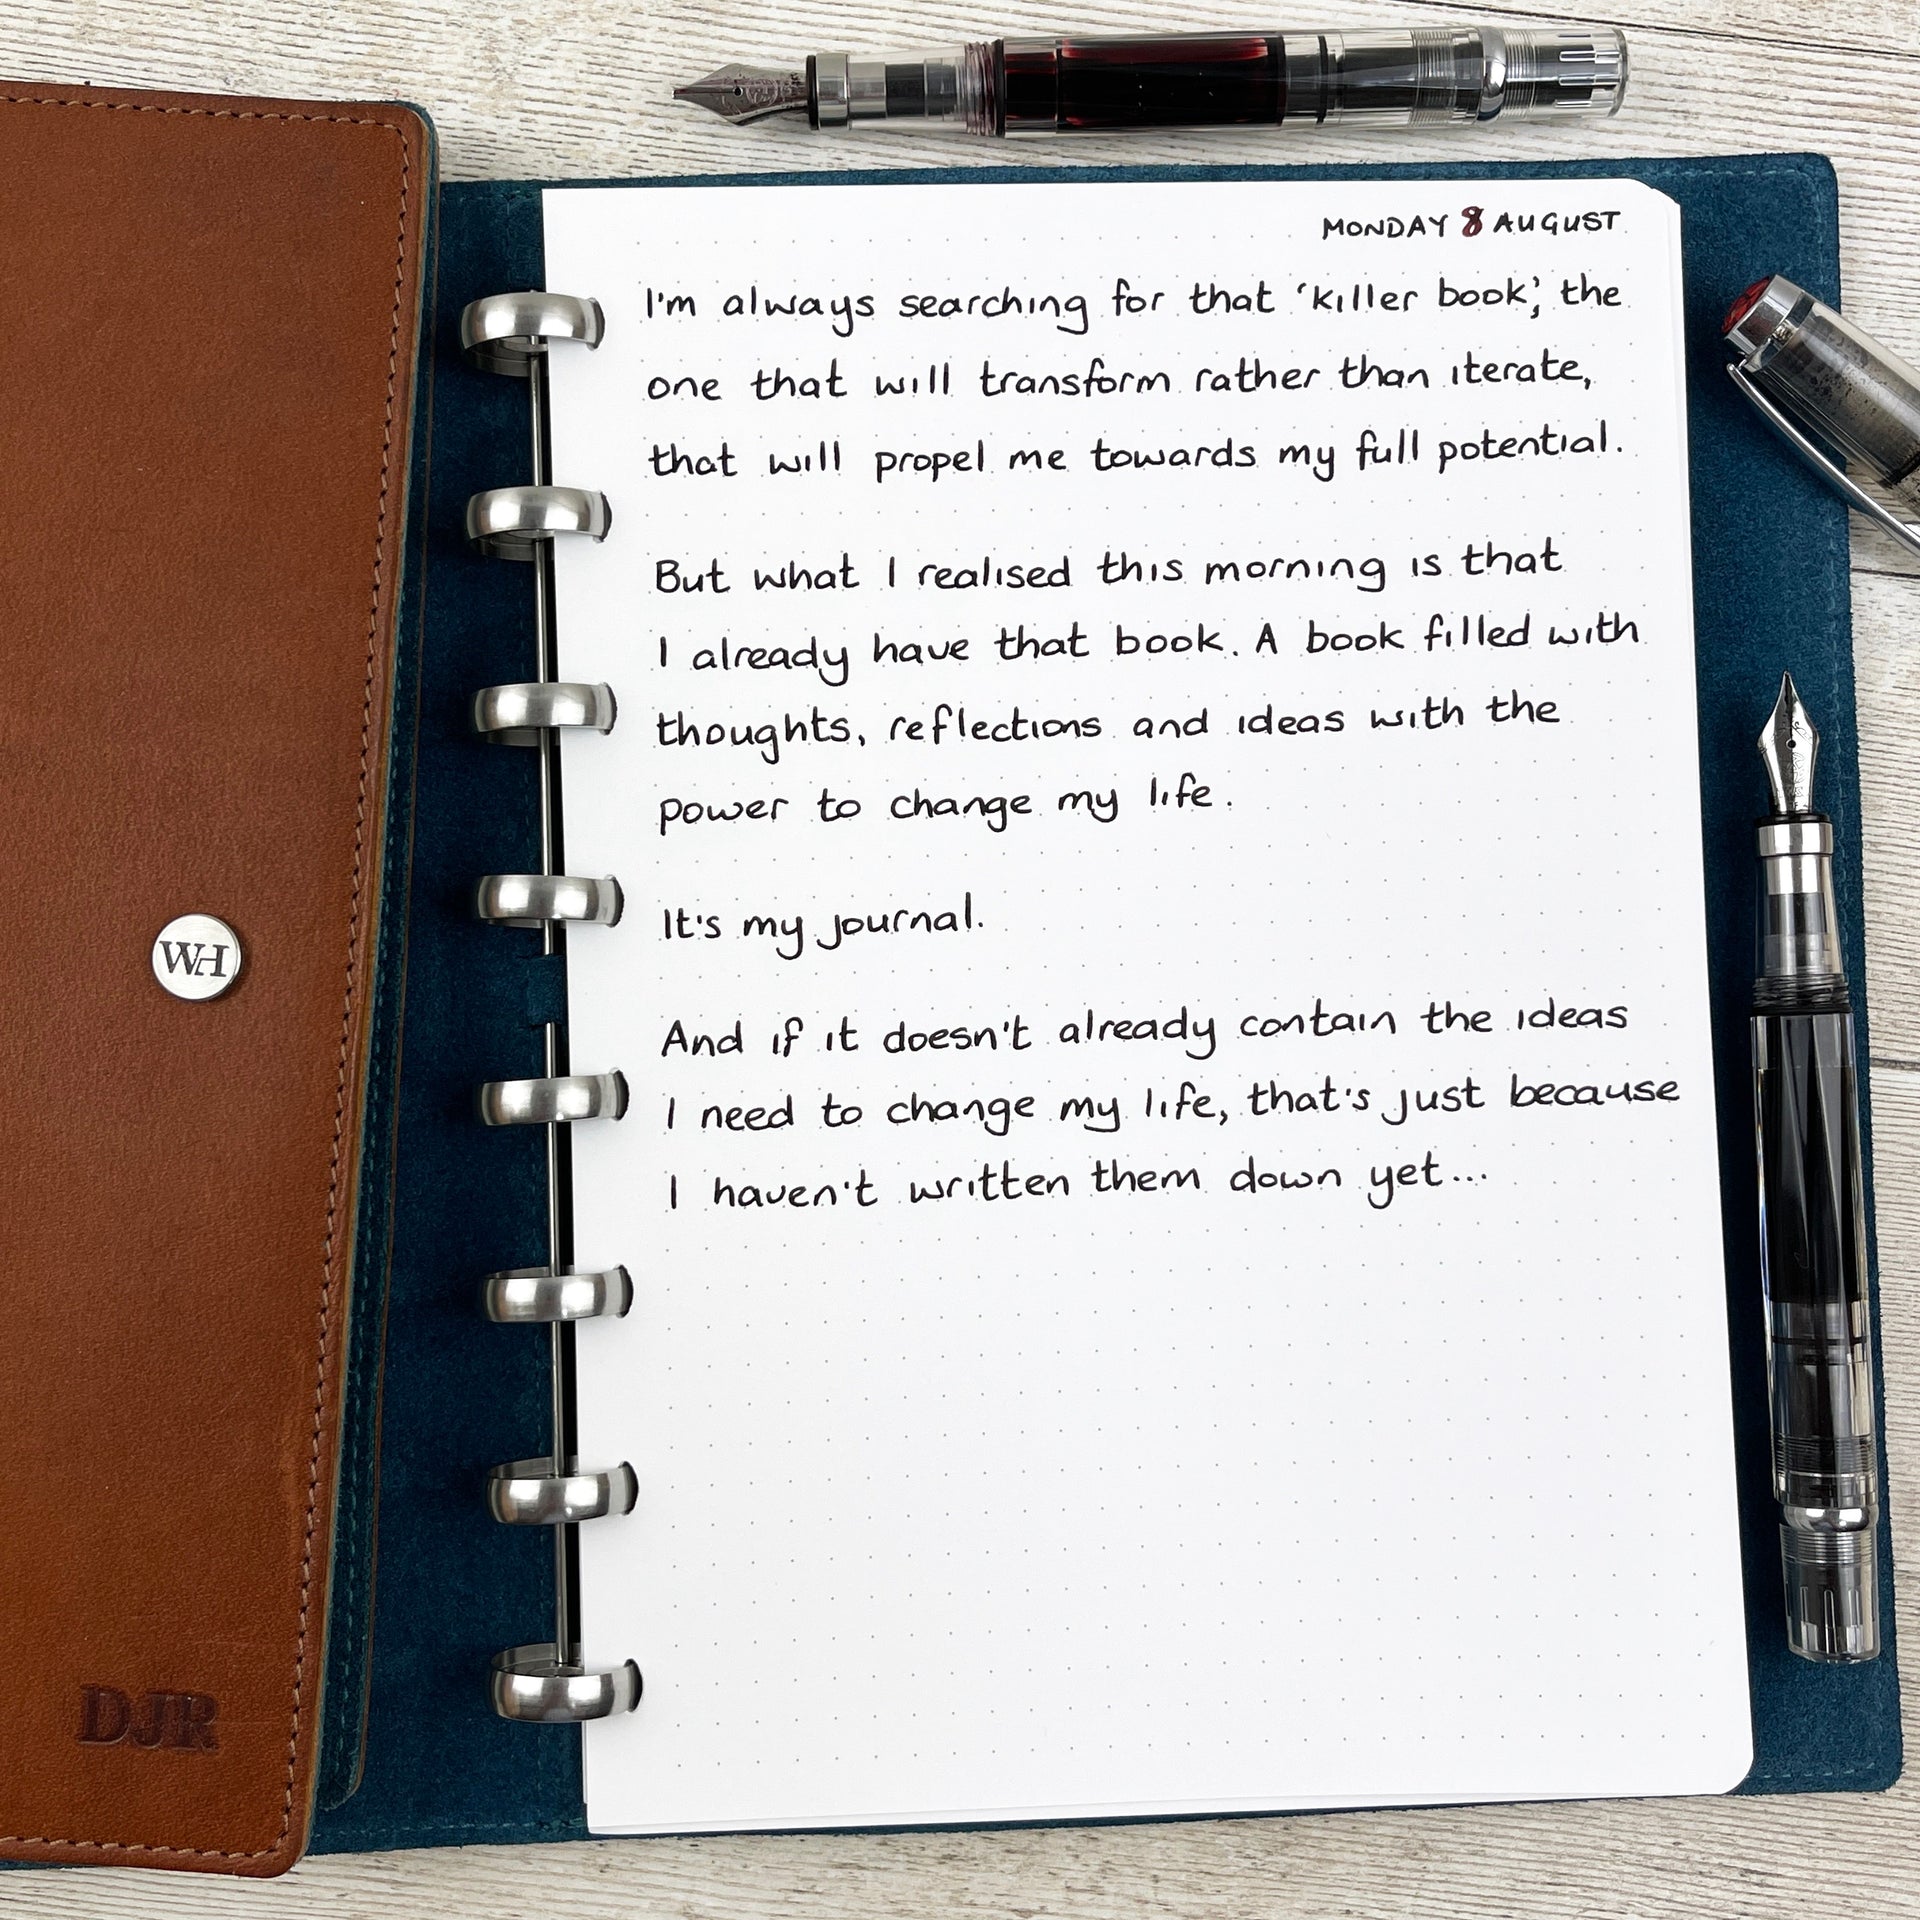 MONDAY 8 AUGUST
I'm always searching for that 'killer book', the
one that will transform rather than iterate,
that will propel me towards my full potential.
But what I realised this morning is that
I already have that book. A book filled with
thoughts, reflections and ideas with the
power to change my life.
It's my journal.
And if it doesn't already contain the ideas
I need to change my life, that's just because
I haven't written them down yet...
WH
DJR